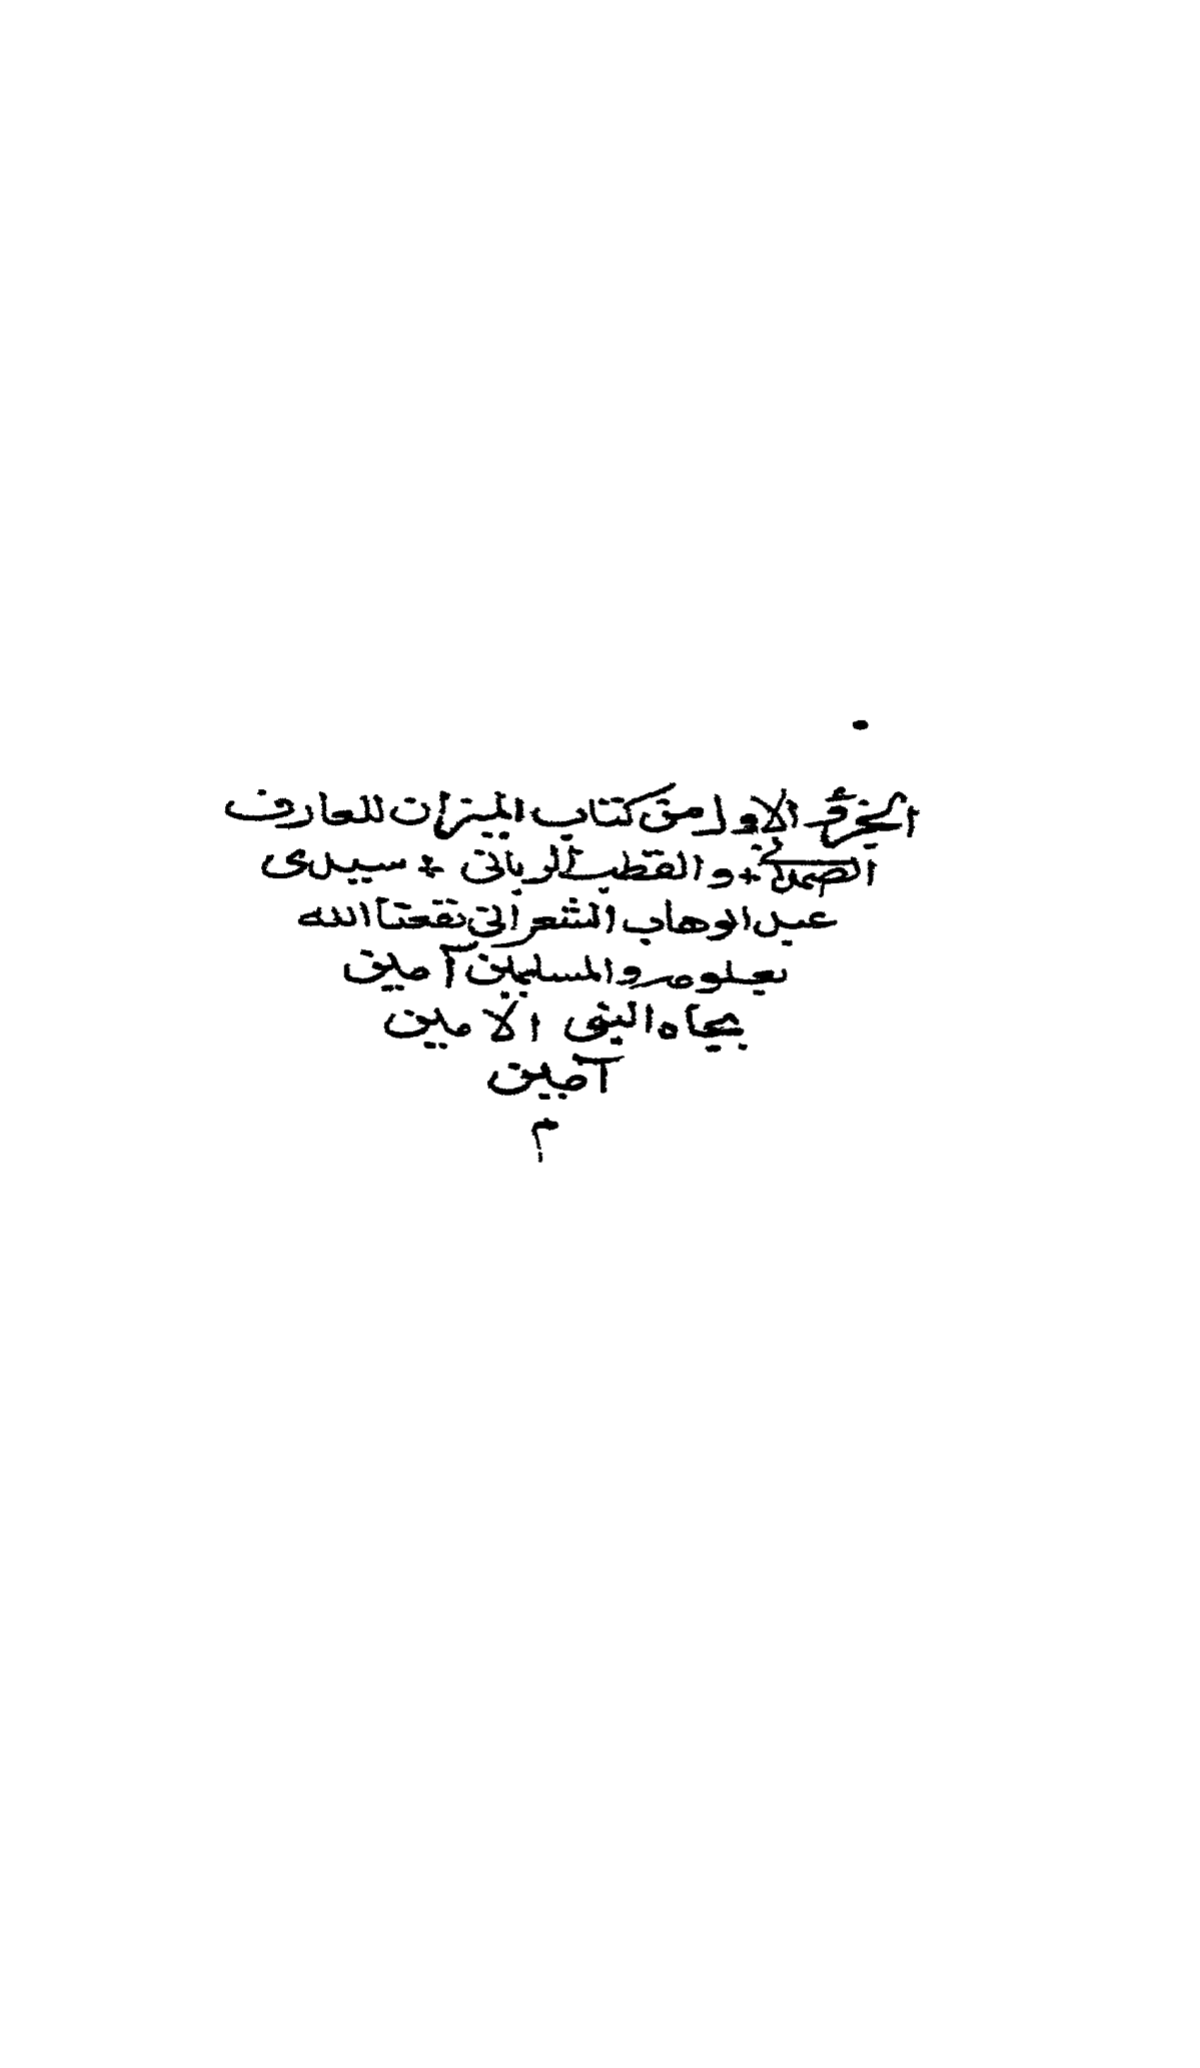 الجزؤ الاول من كتاب الميزان للعارف
الصمداني + والقطب الرباني + سيدى
عبد الوهاب الشعراني نفعنا الله
بعلومه والمسلمين آمين
بجاه النبى الامين
آمين
م